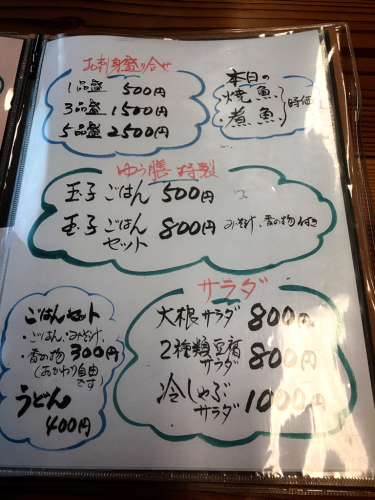 お刺身盛り合せ
1品盛 500円
3品盛 1500円
5品盛 2500円
本日の
・焼魚
・煮魚
時価
ゆう膳 特製
玉子ごはん 500円
玉子ごはん 800円 みそ汁、香の物付き
セット
ごはんセット
・ごはん、みそ汁、
・香の物 300円
(おかわり自由
です)
うどん
400円
サラダ
大根サラダ 800円
2種類豆腐
サラダ 800円
冷しゃぶ
サラダ 1000円